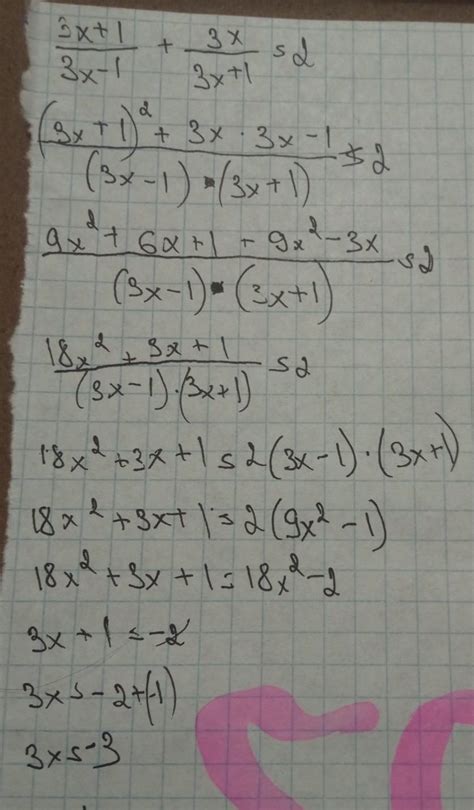 (3x+1)/(3x-1) + 3x/(3x+1) = 2
((3x+1)² + 3x · 3x - 1)/((3x-1) · (3x+1)) = 2
(9x² + 6x + 1 + 9x² - 3x)/((3x-1) · (3x+1)) = 2
(18x² + 3x + 1)/((3x-1) · (3x+1)) = 2
18x² + 3x + 1 = 2(3x-1) · (3x+1)
18x² + 3x + 1 = 2(9x² - 1)
18x² + 3x + 1 = 18x² - 2
3x + 1 = -2
3x = -2 + (-1)
3x = -3